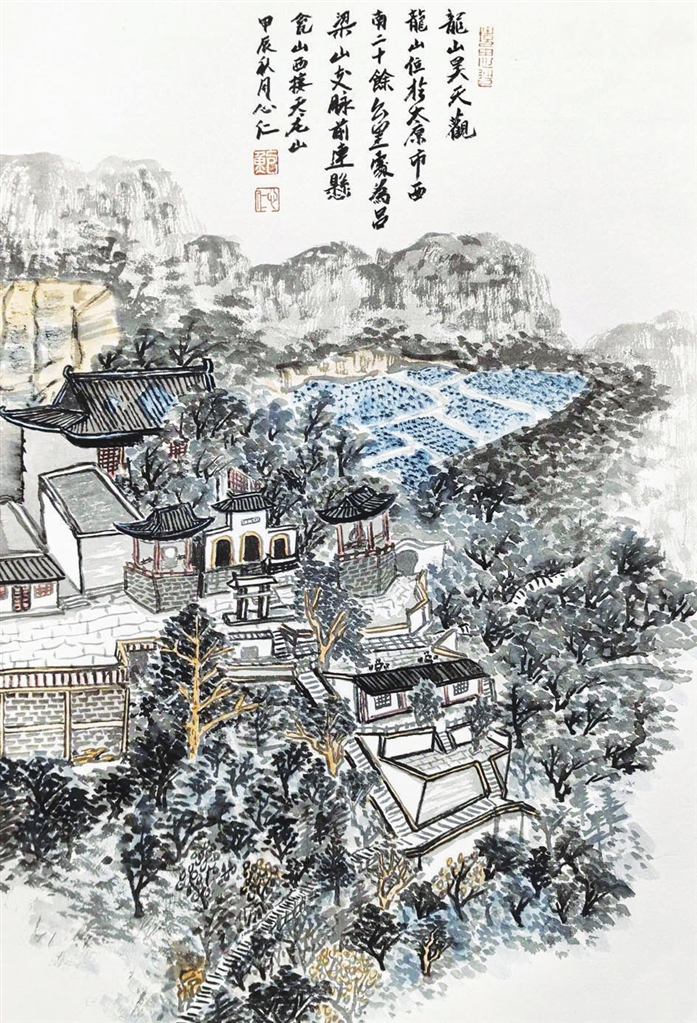 龍山昊天觀
龍山位於太原市西
南二十餘公里處為呂
梁山支脉前連懸
瓮山西接天龙山
甲辰秋月心仁